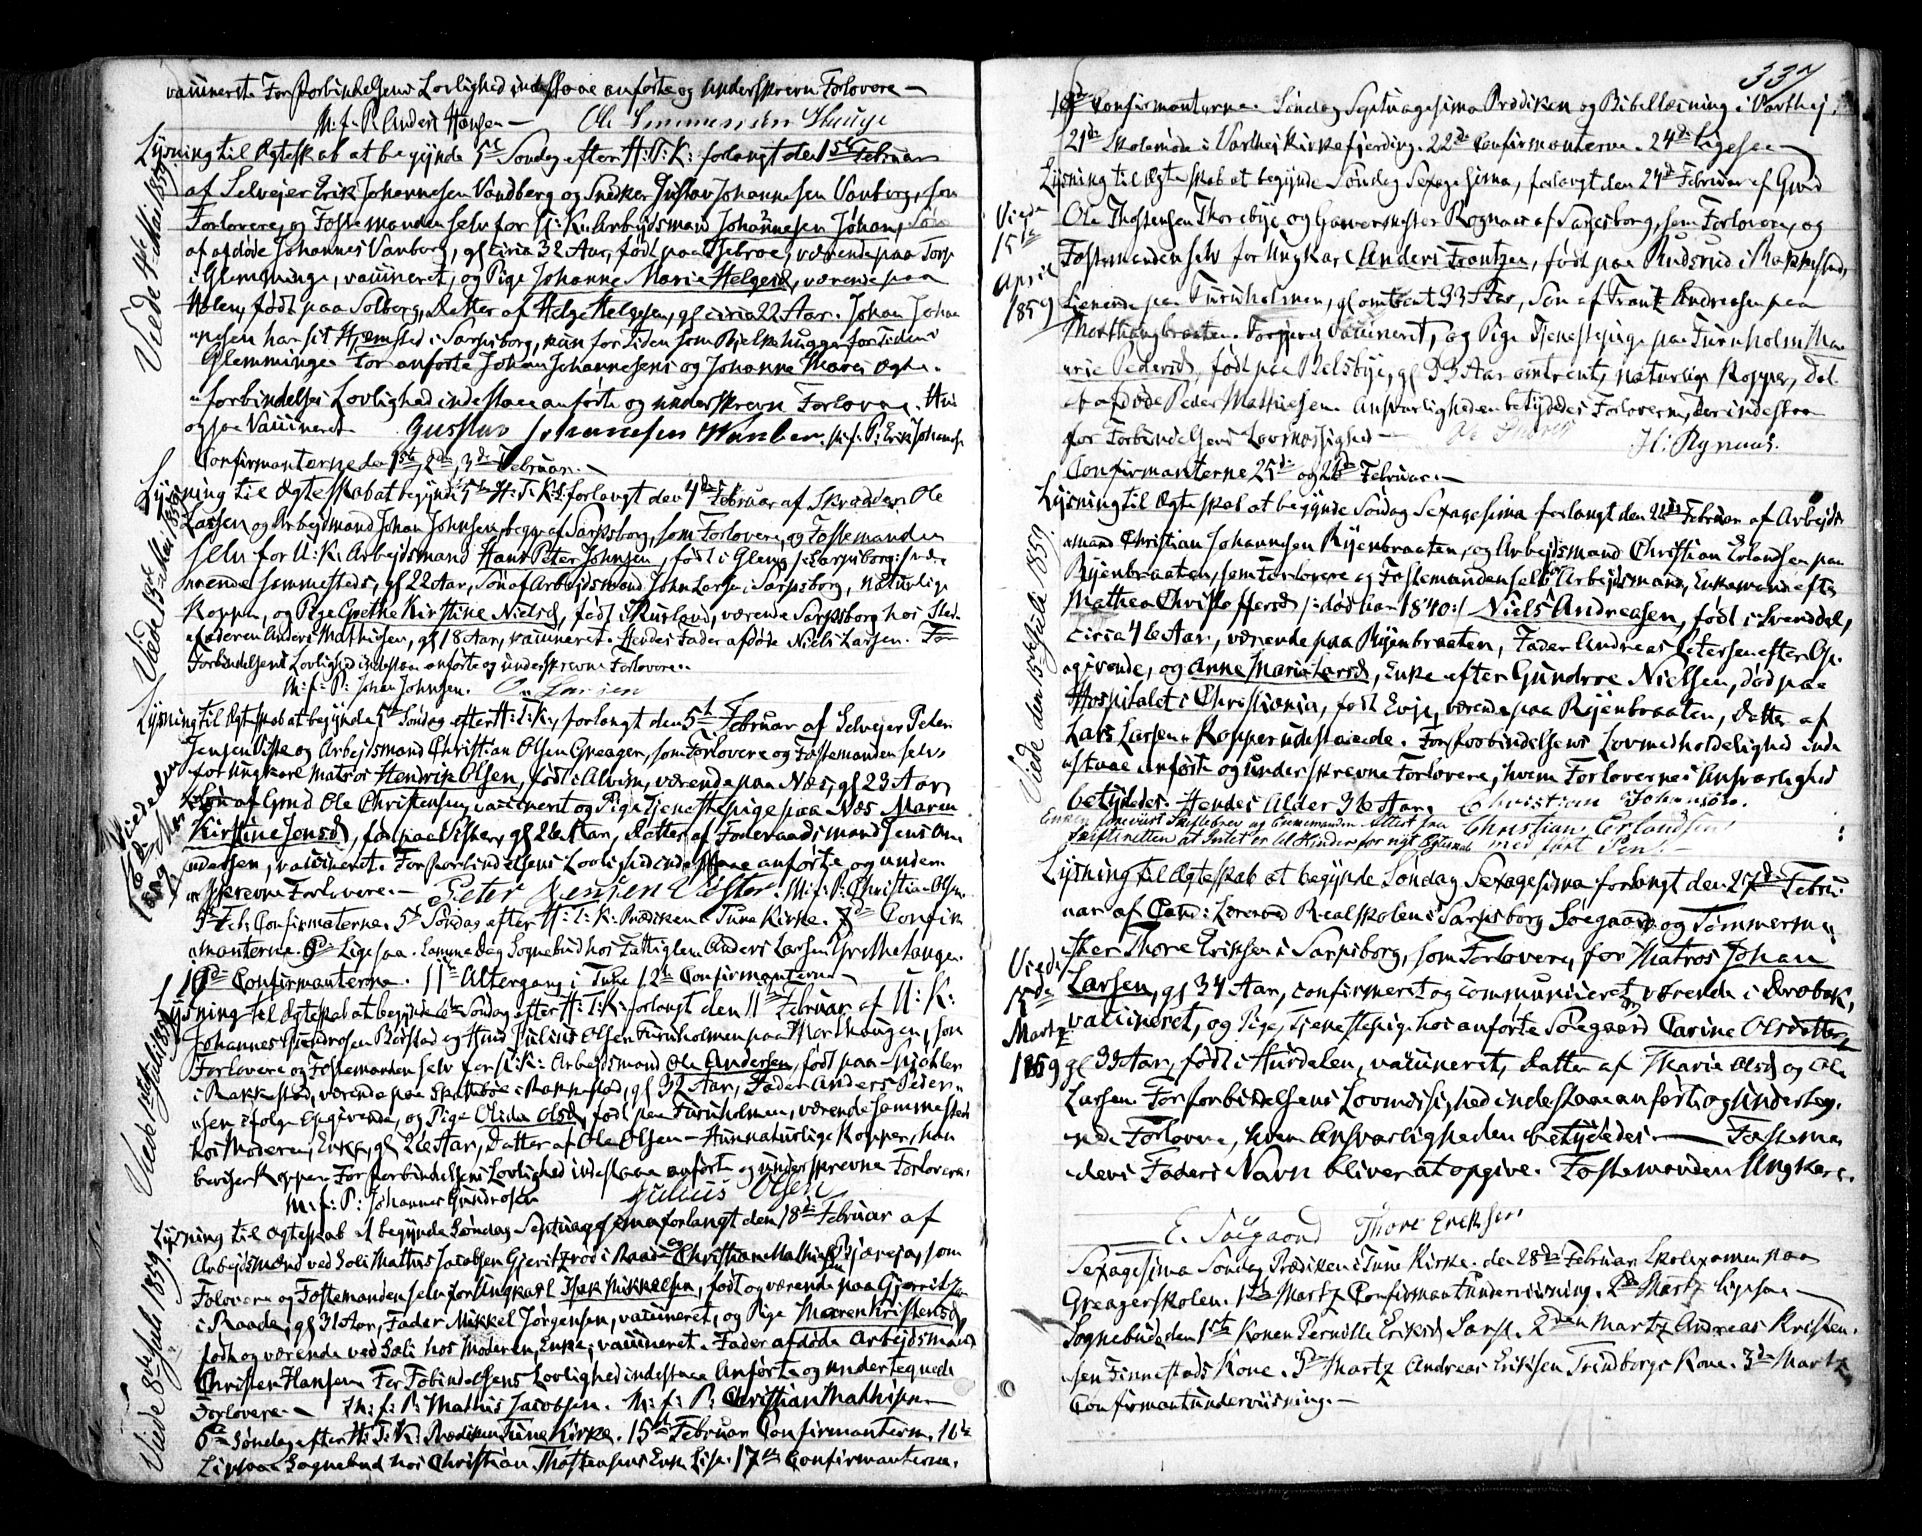 vaccineret. For Forbindelsens Lovlighed indestaae anførte og underskrevn Forlovere —
M: f: P: Anders Hansen — Ole Simmensen
Lysning til Ægteskab at begynde 5te Søndag efter H: T: K: forlangt den 1ste Februar
af Selvejer Erik Johannesen Vandberg og Snedker Gustav Johannesen Vanberg, som
Forlovere, og Fæstemanden selv for U: K: Arbejdsmand Johannesen Johan, Søn
af afdøde Johannes Vanberg, gl circa 32 Aar, født paa værende paa Torp
i Glemminge, vaccineret, og Pige Johanne Marie Helgesd, værende paa
Holen, født paa Solberg, Datter af Helge Helgesen, gl circa 22 Aar. Johan Johan
nesen har sit Hjemsted i Sarpsborg, kun for Tiden som Bjelkehugger for Tiden i
Glemminge. For anførte Johan Johannesens og Johanne Maries Ægte-
forbindelses Lovlighed indestaae anførte og underskrevn Forlovere. Hun
ogsaa Vaccineret Gusttav Johannesen Wanber. M: f: P: Erik Johannesen
Confirmanterne den 1ste, 2den, 3de Februar. —
Lysning til Ægteskab at begynde 5te S: H: T: K: forlangt den 4de Februar af Skrædder Ole
Larsen og Arbejdsmand Johan Johnsen, begge af Sarpsborg, som Forlovere, og Fæstemanden
selv for U: K: Arbejdsmand Hans Peter Johnsen, født i Gleng /: Sarpsborg :/ væ
rende sammesteds, gl 22 Aar, Søn af Arbejdsmand John Larsen i Sarpsborg, naturlige
Kopper, og Pige Grethe Kirstine Nielsd, født i værende Sarpsborg hos Sted-
faderen Anders Mathisen, gl 18 Aar, vaccineret. Hendes Fader afdøde Niels Larsen. For
Forbindelsens Lovlighed indestaae anførte og underskrevne Forlovere.
M: f: P: Johan Johnsen. O. Larsen
Lysning til Ægteskab at begynde 5te Søndag efter H: T: K:, forlangt den 5te Februar af Selvejer Peder
Jensen Viste og Arbejdsmand Christian Olsen Greager, som Forlovere og Fæstemanden selv
for Ungkarl Matros Hendrik Olsen, født i Alvim, værende paa Næs, gl 23 Aar,
Søn af Gmd Ole Christensen, vaccineret og Pige Tjenestepige paa Næs Maren
Kirstine Jensd, født paa Visten, gl 26 Aar, Datter af Foderaadsmand Jens An
dersen, vaccineret. For Forbindelsens Lovlighed indestaae anførte og under
skrevne Forlovere. — Peter Jensen Vister. M: f: P: Christian Olsen
5te Feb. Confirmanterne. 5te Søndag efter H: T: K: Prædiken i Tune Kirke. 7de Confir
manterne. 8de Ligesaa. Samme Dag Sognebud hos Fattiglem Anders Larsen
10de Confirmanterne. 11te Altergang i Tune 12te Confirmanterne
Lysning til Ægteskab at begynde 6te Søndag efter H: T: K: forlangt den 11te Februar af U: K:
Johannes Gundrosen og Hmd Julius Olsen Furuholmen paa Morthaugen, som
Forlovere og Fæstemanden selv for U: K: Arbejdsmand Ole Andersen, født paa
i Rakkestad, værende paa i Rakkestad, gl 32 Aar, Fader Anders Peder-
sen ifølge Opgivende, og Pige Olida Olsd, født paa Furuholmen, værende sammesteds
hos Moderen, Enke, gl 26 Aar, Datter af Ole Olsen — Hun naturlige Kopper, han
beviser Kopper. For Forbindelsens Lovlighed indestaae anførte og underskrevne Forlovere.
M: f: P: Johannes Gundrosen Julius Olsen
Lysning til Ægteskab at begynde Søndag Septuagesima forlangt den 18de Februar af
Arbejdsmænd ved Soli Mathis Jacobsen i Raade og Christian Mathisen som
Forlovere og Fæstemanden selv for Ungkarl Isak Mikkelsen, født og værende paa
i Raade, gl 31 Aar, Fader Mikkel Jørgensen, vaccineret, og Pige Maren Kristensd,
født og værende ved Soli hos Moderen, Enke, vaccineret. Fader afdøde Arbejdsmand
Christen Hansen. For Forbindelsens Lovlighed indestaae Anførte og undertegnede
Forlovere. — M: f: P: Mathis Jacobsen. M: f: P: Christian Mathisen
6te Søndag efter H: T: K: Prædiken Tune Kirke. 15de Februar Confirmanterne, 16de
Ligesaa Sognebud hos Christian Thostensens Enke Lise. 17de Confirmanterne.
Viede 4de Mai 1859.
Viede 13de Mai 1859.
Viede den
16de
Marts
1859
Viede Juli 1859
Viede 8de Juli 1859.
337
19de Confirmanterne. Søndag Septuagesima Prædiken og Bibellæsning i Varthej.
21de Skolemøde i Vartheis Kirkefjerding. 22de Confirmanterne. 24de Ligesaa —
Lysning til Ægteskab at begynde Søndag Sexagesima, forlangt den 24de Februar af Gmd
Ole Thostensen Thorebye og Garvermester Rognaas af Sarpsborg, som Forlovere, og
Fæstemanden selv for Ungkarl Anders Frantzen, født paa Rudsrud i Rakkestad,
tjenende paa Furuholmen, gl omtrent 33 Aar, Søn af Frantz Andreasen paa
Morthaugbraaten. Vaccineret, og Pige Tjenestepige paa Furuholm Ma
rie Pedersd, født paa Belsbye, gl 33 Aar omtrent, naturlige Kopper, Dat
af afdøde Peder Mathiesen. Ansvarligheden betydedes Forloverne, der indestaa
for Forbindelsens Lovmæssighed — Ole Thoreb H: Rynaas.
Confirmanterne 25de og 26de Februar. —
Lysning til Ægteskab at begynde Søndag Sexagesima forlangt den Februar af Arbejds
mand Christian Johannesen Ryenbraaten, og Arbejdsmand Christian Erlandsen paa
Ryenbraaten, som Forlovere og Fæstemanden selv for Arbejdsmand, Enkemand efter
Mathea Christoffersd /: død han 1840 :/ Niels Andreasen, født i Svenddal,
circa 46 Aar, værende paa Ryenbraaten, Fader Andreas Petersen efter Op-
givende, og Anne Marie Larsd, Enke efter Gundroe Nielsen, død paa
Hospitalet i Christiania, født Evje, værende paa Ryenbraaten, Datter af
Lars Larsen. Kopper udestaaede. For Forbindelsens Lovmedholdelighed inde
staae anførte og underskrevne Forlovere, hvem Forlovernes Ansvarlighed
betydedes. Hendes Alder 36 Aar. Christian Johansen.
Enken foreviist Skiftebrev og Enkemanden Attest fra Christian Erlandsen
Skifteretten at Intet er til Hinder for nyt Ægteskab med ført Pen. —
Lysning til Ægteskab at begynde Søndag Sexagesima forlangt den 27de Febru
ar af Cand: Lærer ved Realskolen i Sarpsborg Søegaard og Tømmerme
ster Thore Eriksen i Sarpsborg, som Forlovere, for Matros Johan
Larsen, gl 34 Aar, confirmeret og communiceret, værende i Drøbak,
vaccineret, og Pige, Tjenestepige hos anførte Søegaard Carine Olsdatter
gl 33 Aar, født i Husdalen, vaccineret, Datter af Marie Olsd og Ole
Larsen. For Forbindelsens Lovmæssighed indestaae anførte og underteg-
nede Forlovere, hvem Ansvarligheden betydedes. — Fæsteman
dens Faders Navn bliver at opgive. Fæstemanden Ungkarl.
E. Søegaard Thore Eriksen
Sexagesima Søndag Prædiken i Tune Kirke. den 28de Februar Skolexamen paa
Greagerskolen. 1ste Martz Confirmantunderviisning. 2den Martz ligesaa —
Sognebud den 1ste Konen Pernille Eriksd Sarpsb. 2den Martz Andreas Kristen-
sen Finnestads Kone. 3de Martz Andreas Eriksen Trindborgs Kone. 3de Martz
Confirmantunderviisning. —
Viede
15de
April
1859
Viede den 15de Juli 1859.
Viede
Martz
1859